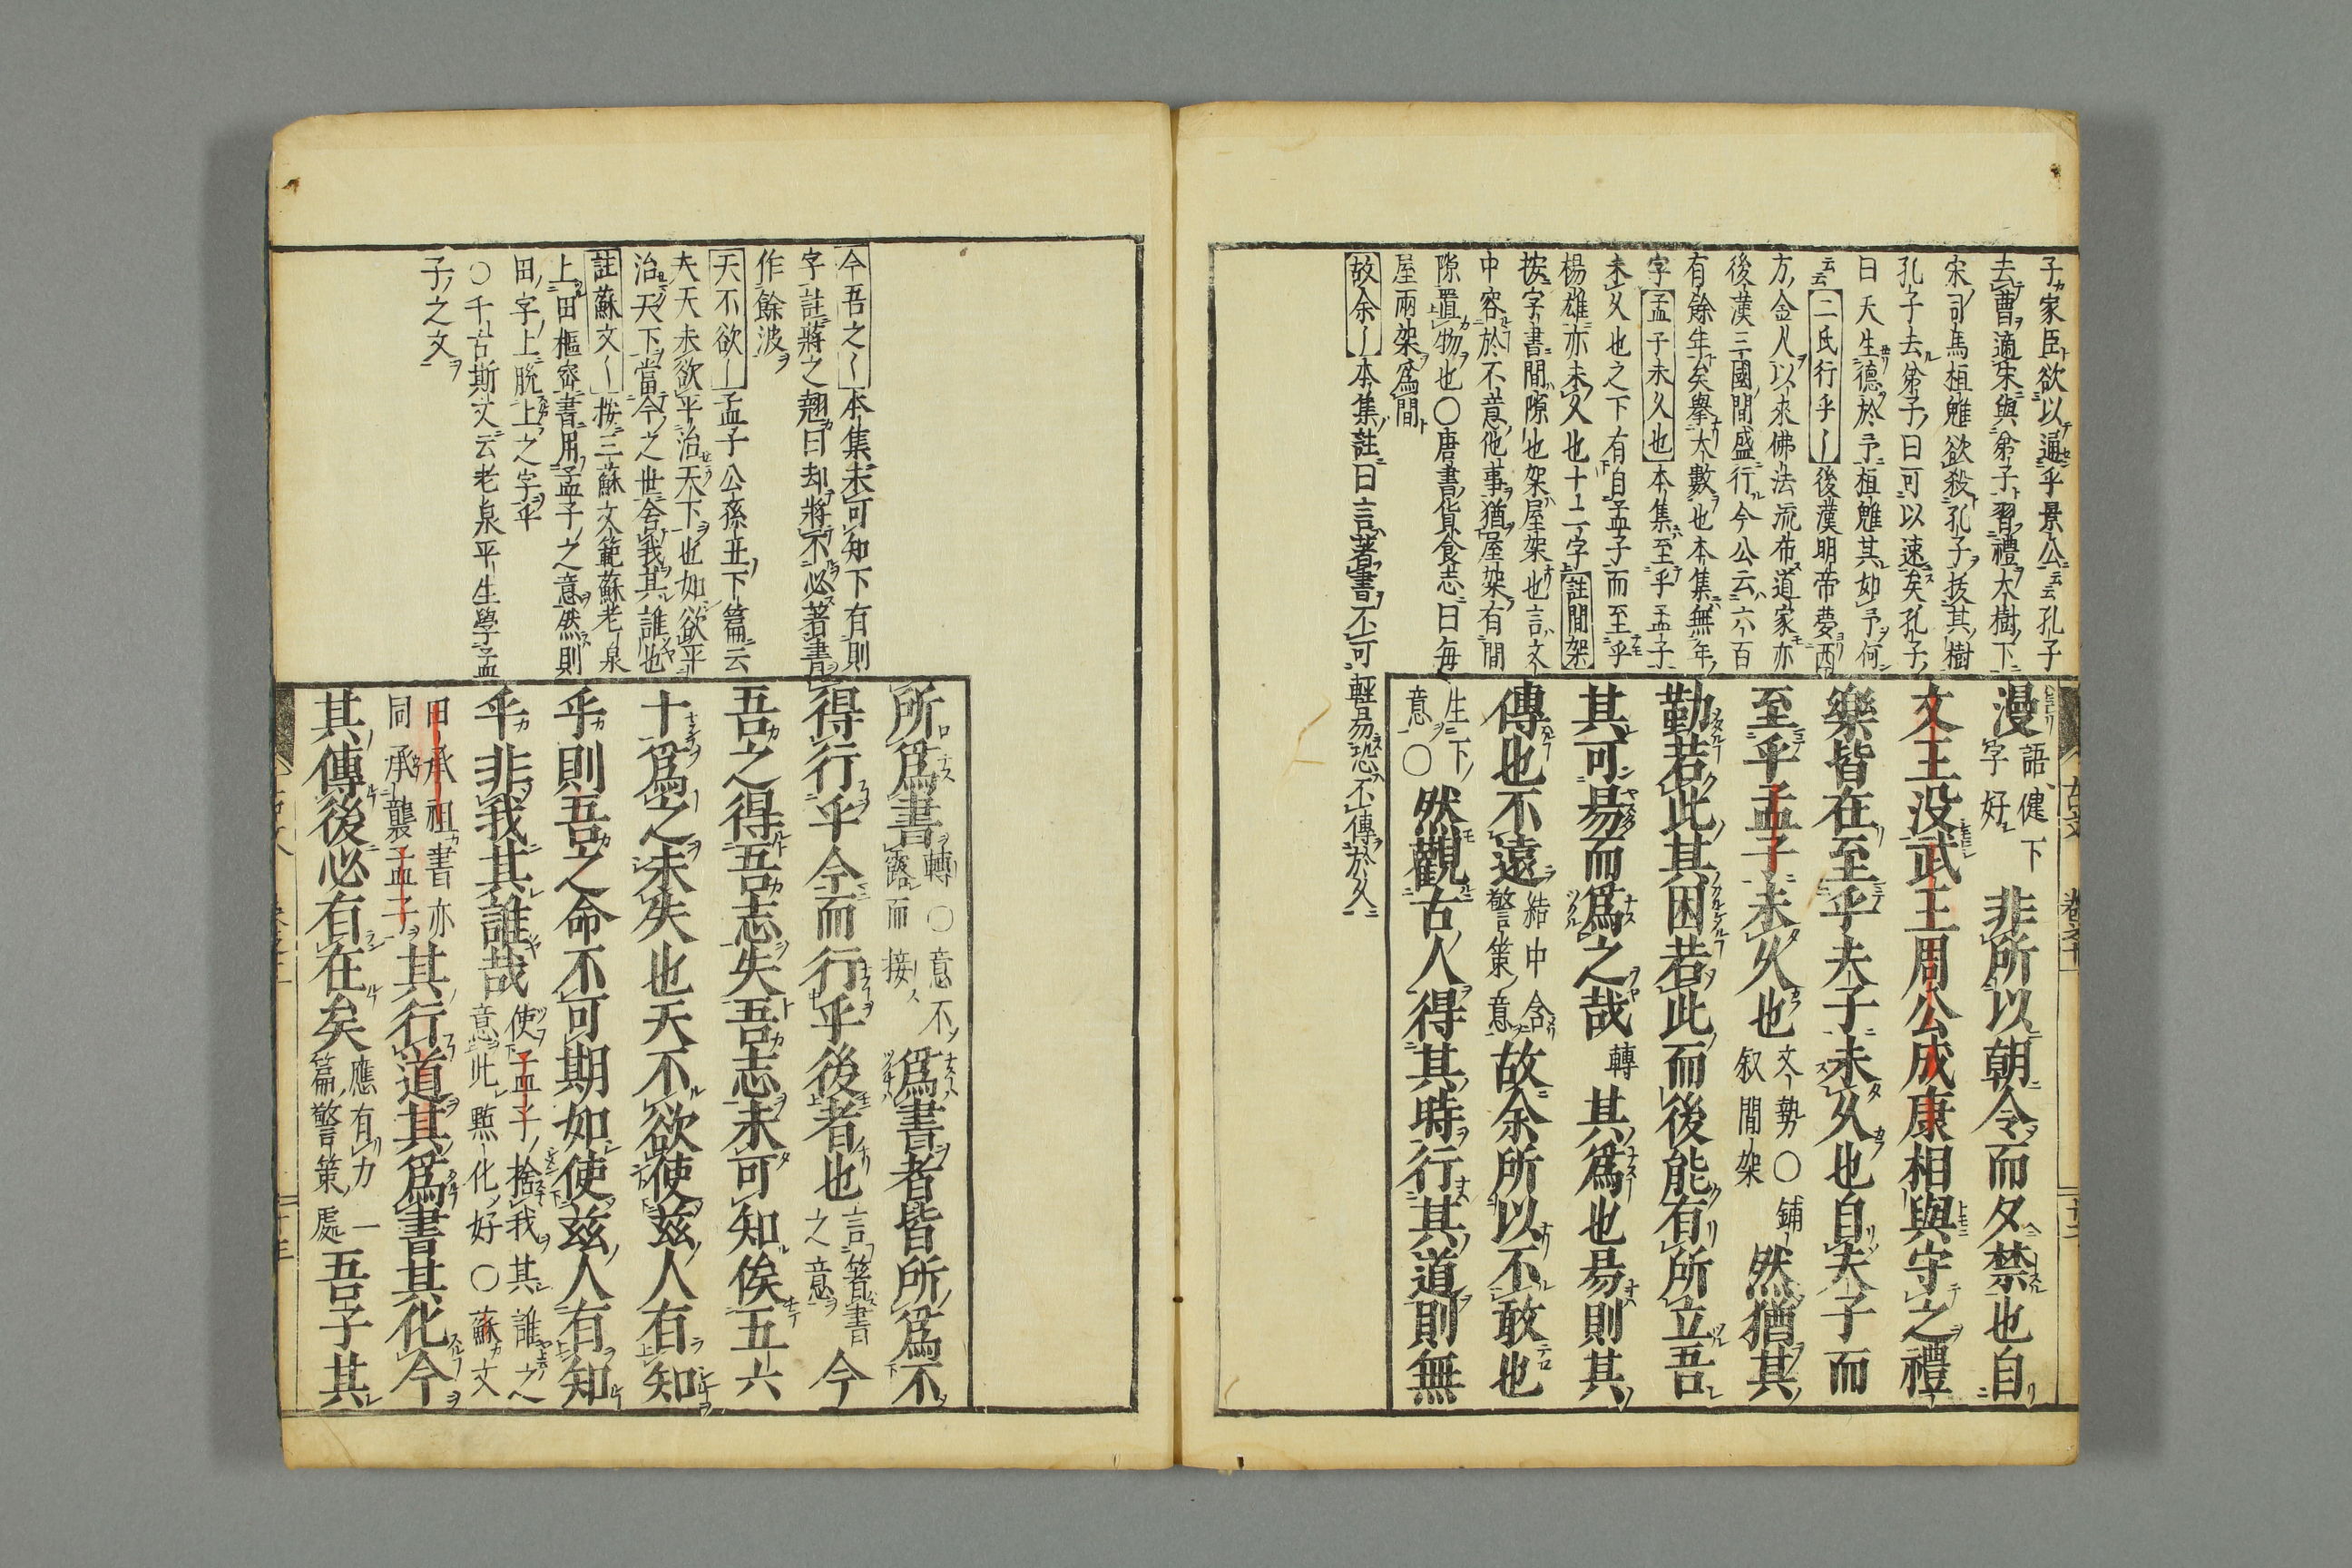 子家臣欲以逼乎景公云云孔子
去曹適宋與弟子習禮大樹下
宋司馬桓魋欲殺孔子拔其樹
孔子去弟子曰可以速矣孔子
曰天生德於予桓魋其如予何
云云二氏行乎〡後漢明帝夢西
方金人以來佛法流布道家亦
後漢三國間盛行今公云六百
有餘年矣擧大數也本集無年
字孟子未久也本集至乎孟子
未久也之下有自孟子而至乎
楊雄亦未久也十二字註間架
按字書間隙也架屋架也言文
中容於不意他事猶屋架有間
隙置物也〇唐書食貨志曰每
屋兩架爲間
故余〡本集註曰言著書不可輕易恐不傳於久
漫語健下字好非所以朝令而夕禁也自
文王没武王周公成康相與守之禮
樂皆在至乎夫子未久也自夫子而
至乎孟子未久也文勢〇鋪叙間架然猶其
勤若此其困若此而後能有所立吾
其可易而爲之哉轉其爲也易則其
傳也不遠結中含警策意故余所以不敢也
生下意〇然觀古人得其時行其道則無
今吾之〡本集未可知下有則
字註蔣之翹曰却將不必著書
作餘波
天不欲〡孟子公孫丑下篇云
夫天未欲平治天下也如欲平
治天下當今之世舍我其誰也
註蘇文〡按三蘇文範蘇老泉
上田樞密書用孟子之意然則
田字上脱上之字乎
〇千古斯文云老泉平生學孟
子之文
所爲書轉〇意不露而接爲書者皆所爲不
得行乎今而行乎後者也言著書之意今
吾之得吾志失吾志未可知俟五六
十爲之未失也天不欲使茲人有知
乎則吾之命不可期如使茲人有知
乎非我其誰哉使孟子捨我其誰之意此㸃化好〇蘇文
田承祖書亦同承襲孟子其行道其爲書其化今
其傳後必有在矣應有力一篇警策處吾子其